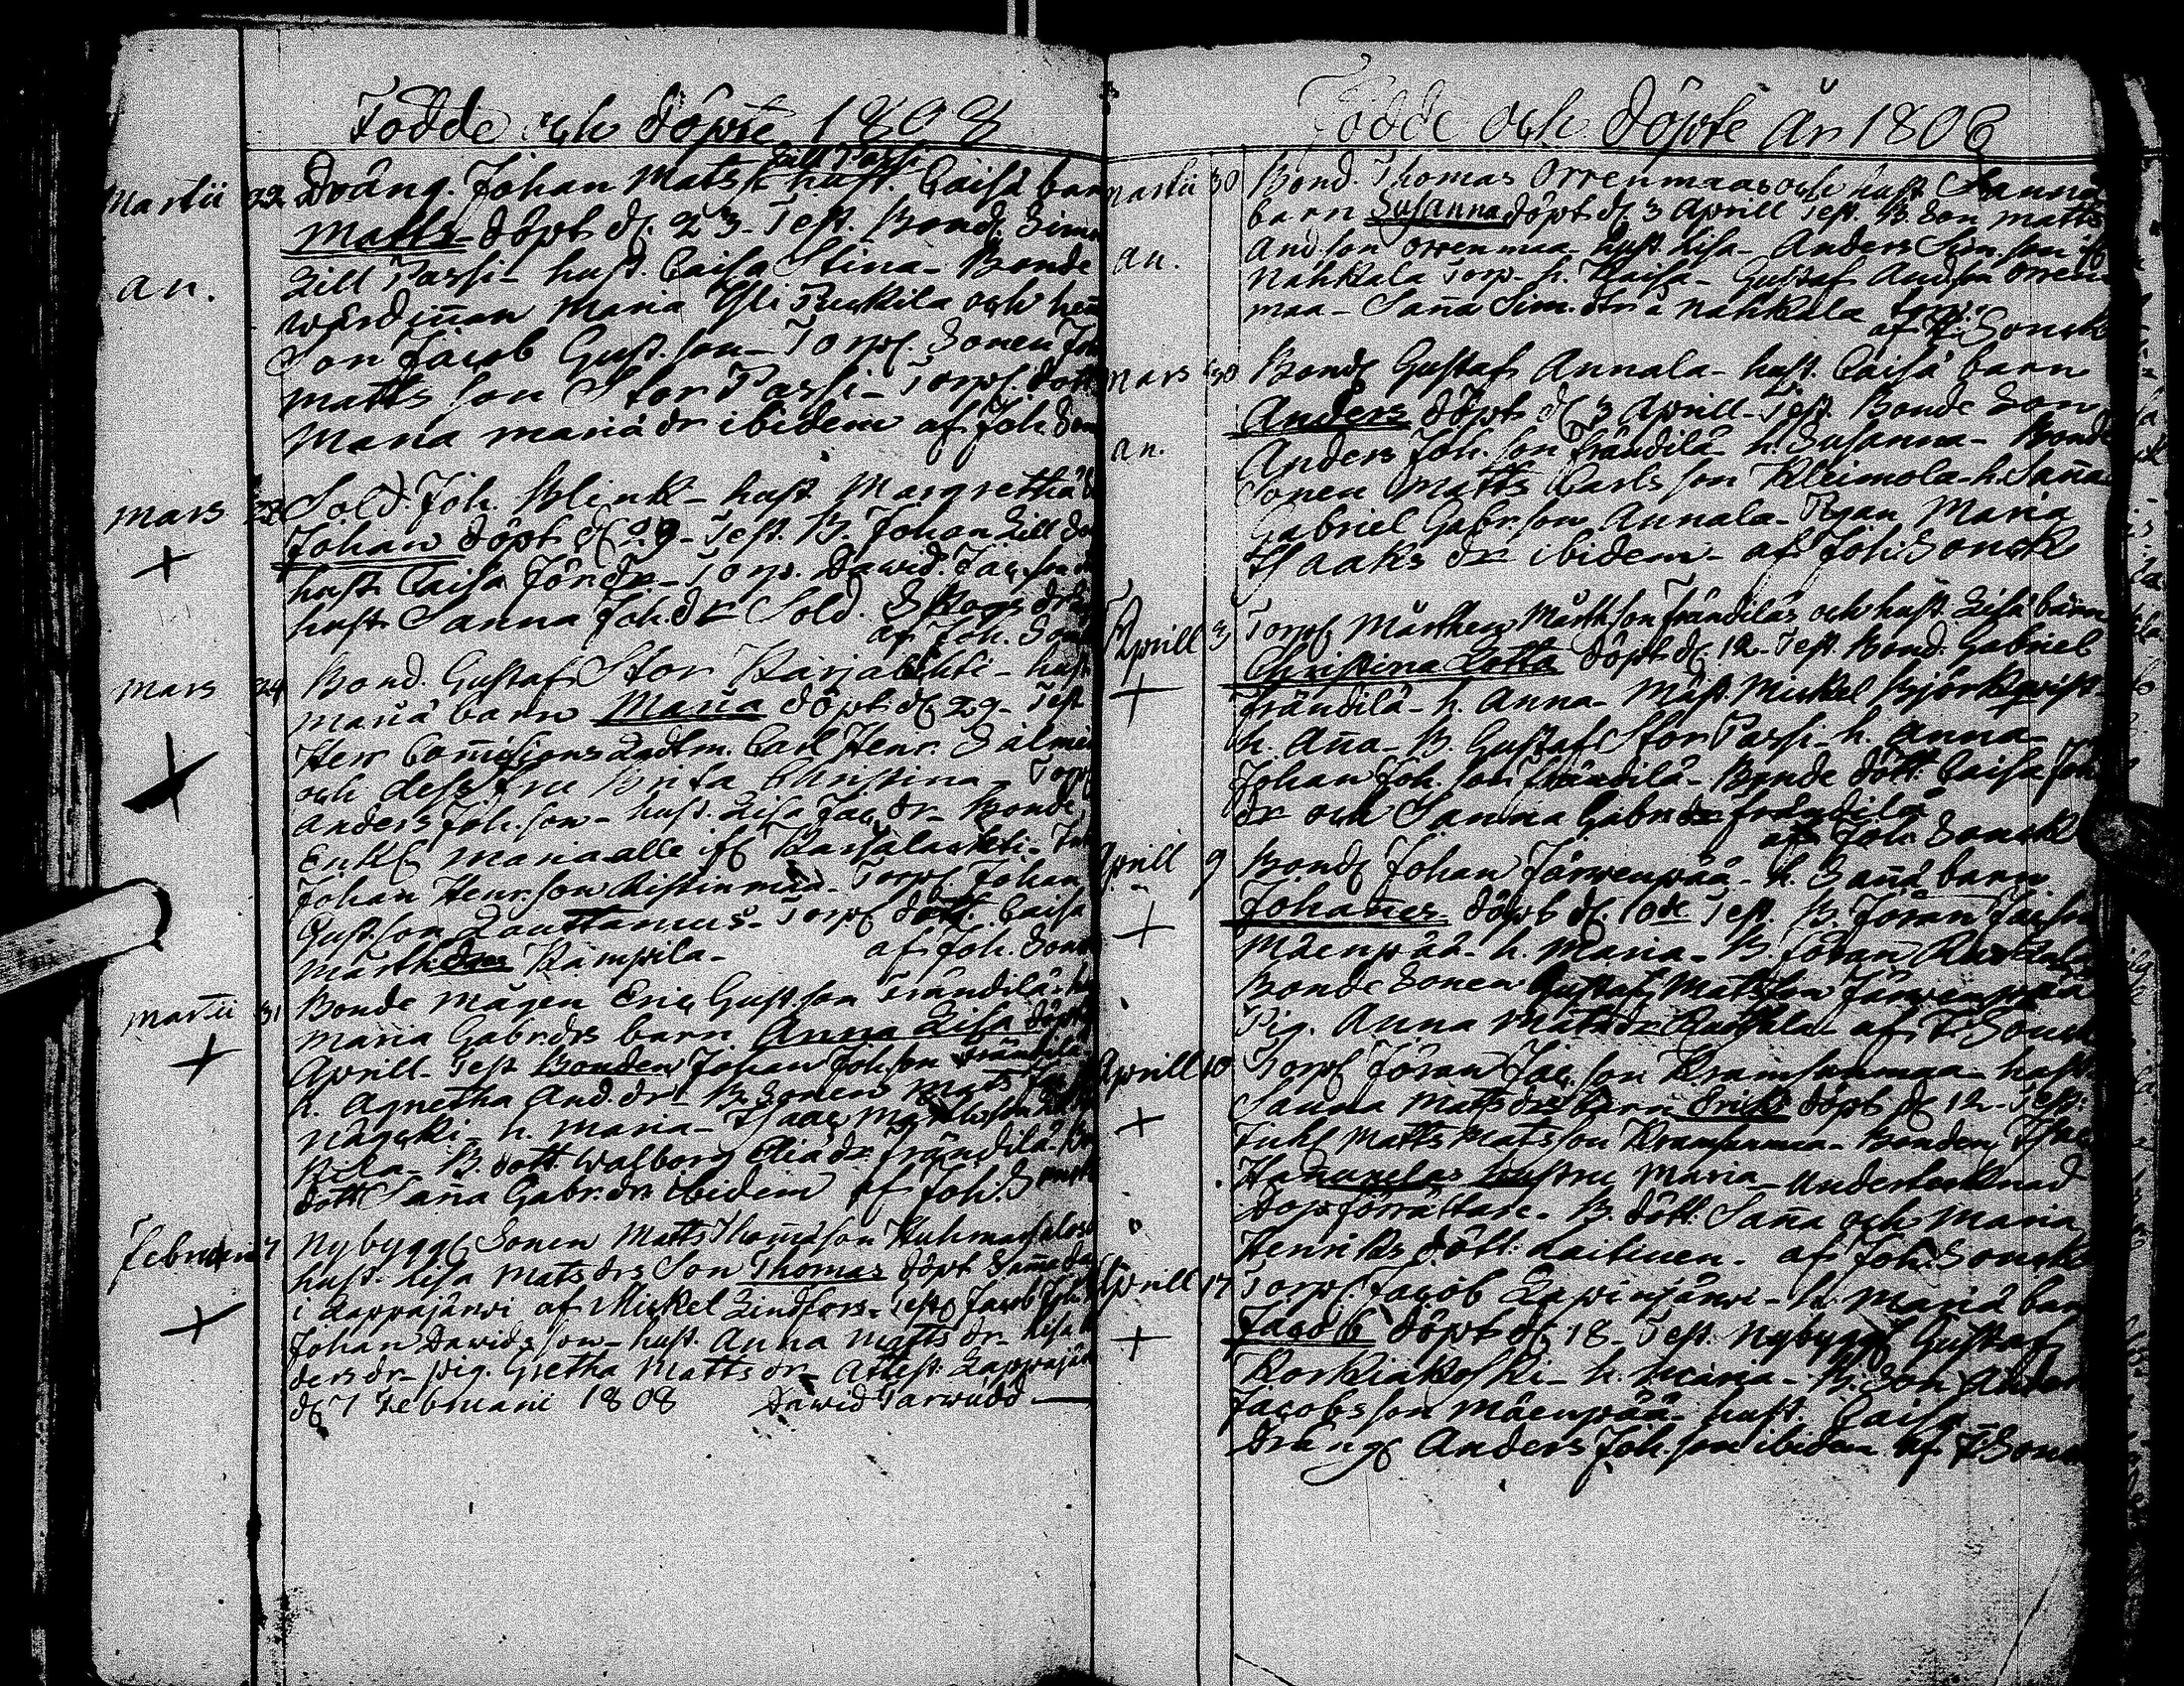 Födde och döpte 1808
Martii 22 Dräng. Johan Mats s. Lill Passi hust. Caisa barn
Matts döpt d. 23 - Test. Bond. Simo
an. Lill Passi - hust. Caisa Stina - Bonde
wärdiñan Maria Yli Puckila och hen
Son Jacob Gust. son - Torp. Sonen Joh
Matts son Stor Passi - Torp. dott
Maria dr ibidem af Joh. Son
Mars 28 Sold. Joh. Blink - hust Margretha
+ Johan döpt d 29 - Test. B. Johan Lill
hust Caisa Jör dr - Torp. Dawid Jac. son
hust Sanna Joh. dr Sold. Skogs
af Joh. Son
Mars 24 Bond. Gustaf Stor Karjalahti - hust
Maria barn Maria döpt d 29 - Test
+ Herr Com̃issions Lndtm. Carl Henr. Salmin
och dess fru Brita Christina - Torp
Anders Joh. son - hust. Lisa Jac. dr - Bonde
Enk. Maria alle if. Karjalahti -
Johan Henr. son Ristinmaa - Torp. Johan
Gust. son Lauttamus - Torp dott. Caisa
Märth Kampila - af Joh. Son
Martii 31 Bonde Mågen Eric Gust. son Frändilä - h
+ Maria Gabr. drs barn Anna Lisa döpt
Aprill - Test Bonden Johan Joh. son Frändilä
h. Agnetha And. dr - B. Sonen Mats
h. Maria - Isaac
B. dott. Walborg Elia dr Frändilä
dott Sañä Gabr. dr ibidem af Joh. Sonck
Februarii 7 Nybygg. Sonen Matts Thoma son Kuhmasalo
hust. Lisa Mats drs Son Thomas döpt Sam̃a da
+ i Lappajärwi af Mickel Lindfors - Test. Jacob
Johan Dawids son - hust. Anna Matts dr - Lisa
ders dr - pig. Gretha Matts dr - Attest. Lappajär
d. 7 Februarii 1808 Dawid Tarwudd
Födde och döpte år 1808
Martii 30 Bond. Thomas Orrenmaas och hust Sanna
barn Susanna döpt d. 3 Aprill Test. B. Son Matts
an. And. son Orrenmaa - hust. Lisa - Anders Sim. son
Nahkala Torp - h. Caisa - Gustaf And. son Orren
maa - Sañä Sim. dr å Nahkala torp.
af J. Sonck
Mars 30 Bond. Gustaf Annala - hust. Caisa barn
Anders döpt d. 3 Aprill - Test. Bonde Son
an. Anders Joh. son Frändilä h. Susanna - Bonde
Sonen Matts Carls son Kleimola - h. Sañä
Gabriel Gabr. son Annala - Pigan Maria
Isaaks dr ibidem - af Joh. Sonck
Aprill 3 Torp. Märthen Märth. son Frändiläs och hust. Lisa barn
Christina Lotta döpt d. 12 - Test Bond. Gabriel
+ Frändilä - h. Anna - Mäst. Mickel Björkqvist
h. Aña - B. Gustaf Stor Passi - h. Anna -
Johan Joh. son Frändilä - Bonde dött. Caisa Joh
dr och Sanna Gabr. dr Frändilä
af Joh. Sonck
Aprill 9 Bond. Johan Järwenpää - h. Sañä barn
+ Johañes döpt d. 10de Test. B. Jöran Jac. son
Mäenpää - h. Maria - B. Jöran
Bonde Sonen Gustaf Matts son Järwenpää
Pig. Anna Mats dr af J. Sonck
Aprill 10 Torp. Jöran Jac. son Kramsunmaa - hust
Sanna Matts drs barn Erick döpt d. 12 - Test.
+ Matts Matsson Kramsunmaa - Bonden
hustru Maria - Undertecknad
Dop förrättare - B. dött. Sañä och Maria
Henriks dött. Laitinen - af Joh. Sonck
Aprill 17 Torp. Jacob Lapinjärwi - h. Maria barn
+ Jacob döpt d. 18 - Test. Nybygg. Gustaf
Korkiakoski - h. Maria - B. Son Anders
Jacobs son Mäenpää - hust. Caisa
dräng. Anders Joh. son ibidem af J. Sonck